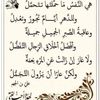 هِيَ النَّفْسُ مَا حَمَّلْتَهَا تَتَحَمَّلُ
وَلِلدَّهْرِ أَيَّامٌ تَجُورُ وَتَعْدِلُ
وَعَاقِبَةُ الصَّبْرِ الْجَمِيلِ جَمِيلَةٌ
وَأَفْضَلُ أَخْلَاقِ الرِّجَالِ التَّفَضُّلُ
وَلَا عَارَ إِنْ زَالَتْ عَنِ الْمَرْءِ نِعْمَةٌ
وَلَكِنَّ عَارًا أَنْ يَزُولَ التَّجَمُّلُ